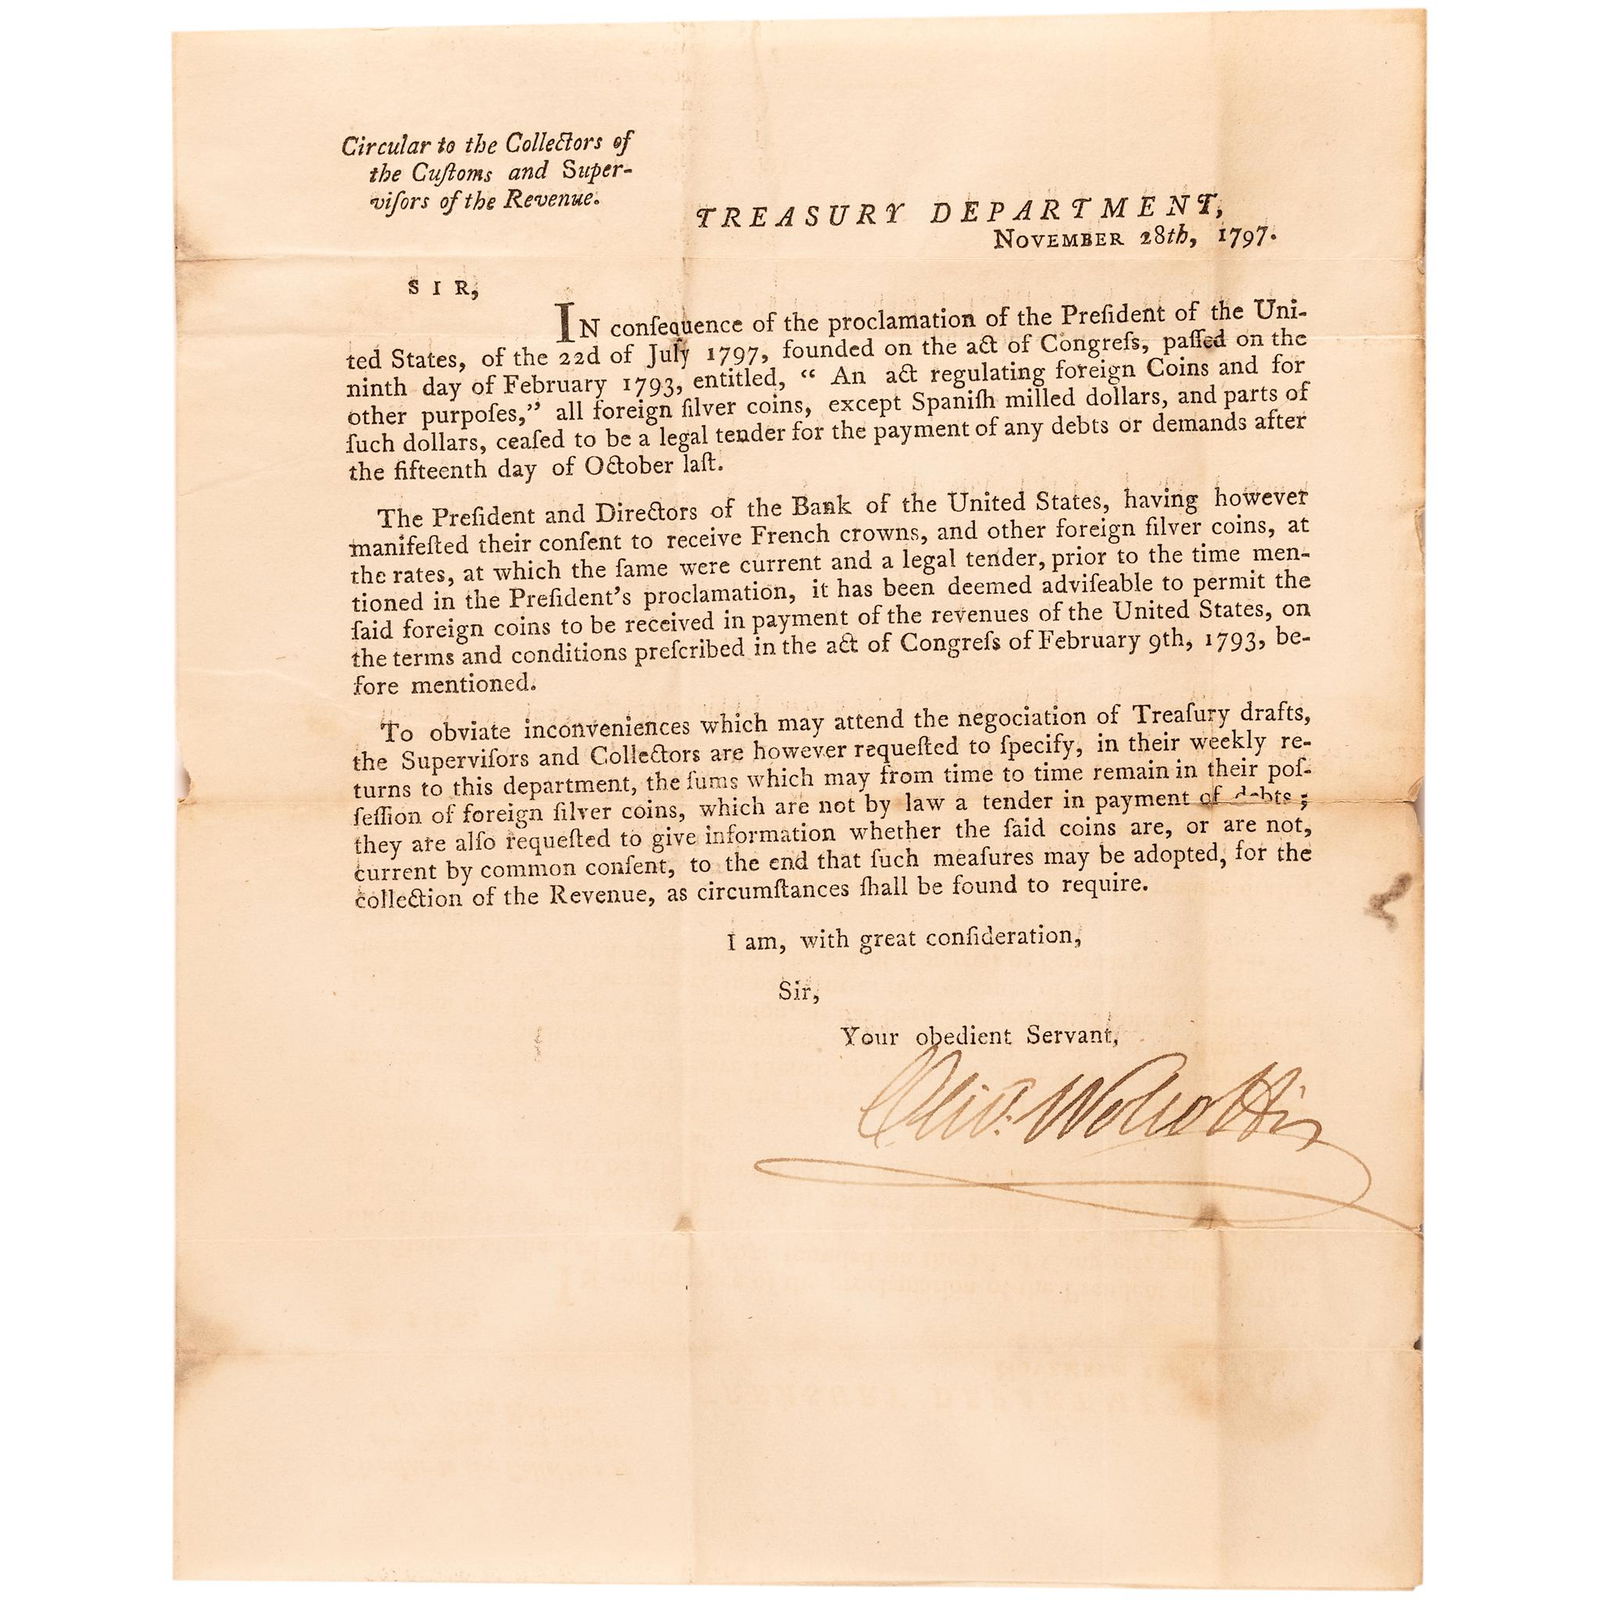 Circular to the Collectors of
the Cuſtoms and Super-
viſors of the Revenue.
TREASURY DEPARTMENT,
NOVEMBER 28th, 1797.
SIR,
IN conſequence of the proclamation of the Preſident of the Uni-
ted States, of the 22d of July 1797, founded on the act of Congreſs, paſſed on the
ninth day of February 1793, entitled, “ An act regulating foreign Coins and for
other purpoſes,” all foreign ſilver coins, except Spaniſh milled dollars, and parts of
ſuch dollars, ceaſed to be a legal tender for the payment of any debts or demands after
the fifteenth day of October laſt.
The Preſident and Directors of the Bank of the United States, having however
manifeſted their conſent to receive French crowns, and other foreign ſilver coins, at
the rates, at which the ſame were current and a legal tender, prior to the time men-
tioned in the Preſident's proclamation, it has been deemed adviſeable to permit the
ſaid foreign coins to be received in payment of the revenues of the United States, on
the terms and conditions preſcribed in the act of Congreſs of February 9th, 1793, be-
fore mentioned.
To obviate inconveniences which may attend the negociation of Treaſury drafts,
the Superviſors and Collectors are however requeſted to ſpecify, in their weekly re-
turns to this department, the ſums which may from time to time remain in their poſ-
ſeſſion of foreign ſilver coins, which are not by law a tender in payment of debts ;
they are alſo requeſted to give information whether the ſaid coins are, or are not,
current by common conſent, to the end that ſuch meaſures may be adopted, for the
collection of the Revenue, as circumſtances ſhall be found to require.
I am, with great conſideration,
Sir,
Your obedient Servant,
Oliv. Wolcott Jr